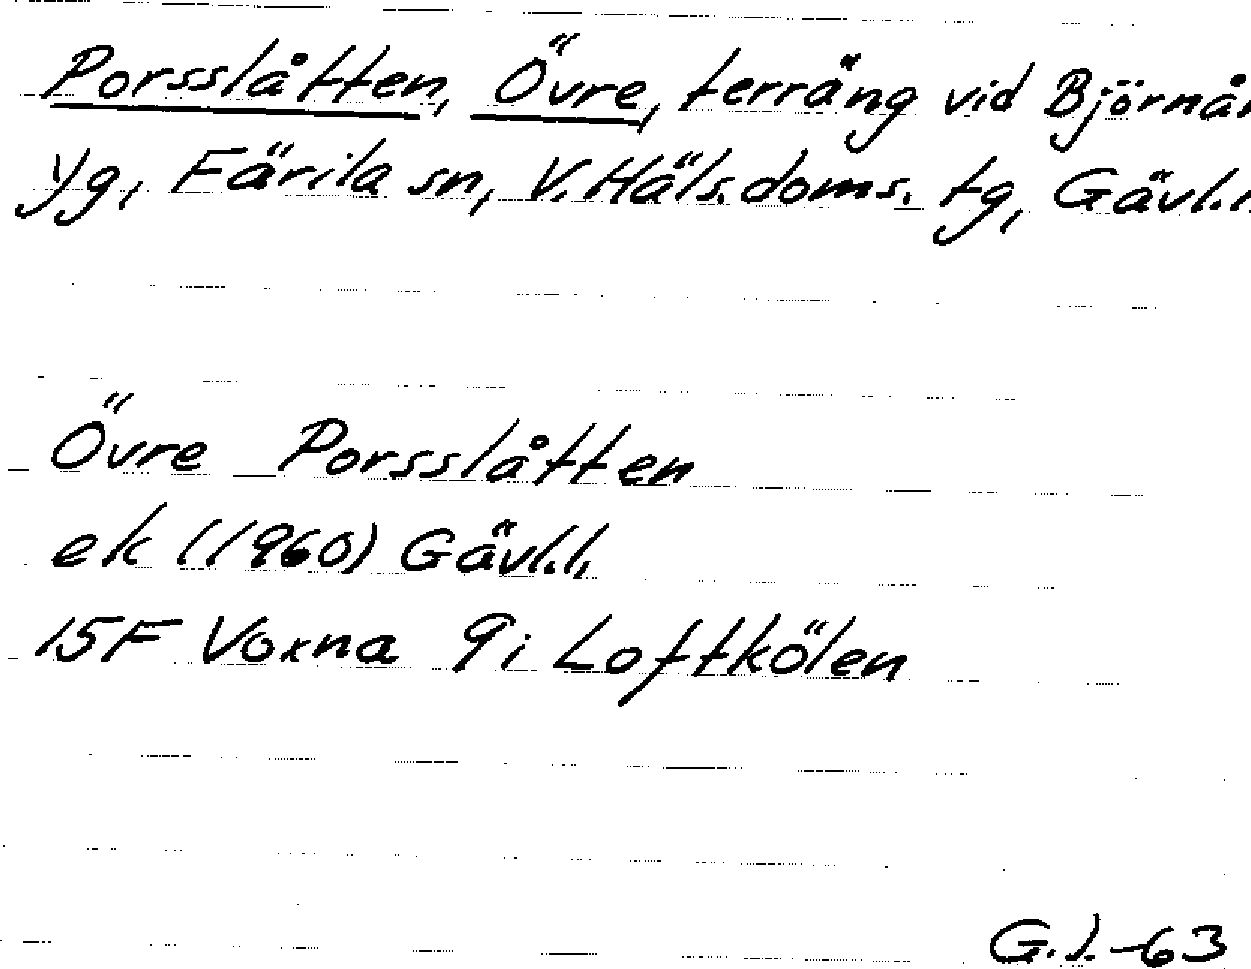 Porsslåtten, Övre, terräng vid Björnå
yg, Färila sn, V. Häls. doms. tg, Gävl.l
Övre Porsslåtten
ek (1960) Gävl.l.
15F Voxna 9i Loftkölen
G.I.-63